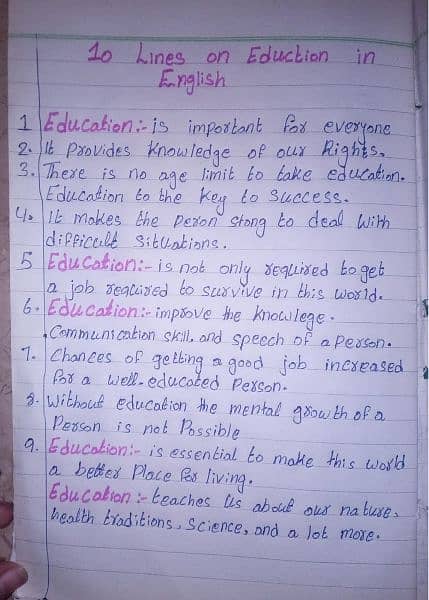 10 Lines on Eduction in
English
1 Education:- is important for everyone
2. It Provides Knowledge of our Rights.
3. There is no age limit to take education.
Education to the Key to Success.
4. It makes the Peron stong to deal With
difficult Situations.
5 Education:- is not only required to get
a job required to survive in this world.
6. Education:- improve the knowlege.
Communication skill. and speech of a person.
7. Chances of getting a good job increased
for a well. educated Person.
8. Without education the mental growth of a
Person is not Possible
9. Education:- is essential to make this world
a better Place for living.
Education:- teaches Us about our nature,
health traditions, Science, and a lot more.